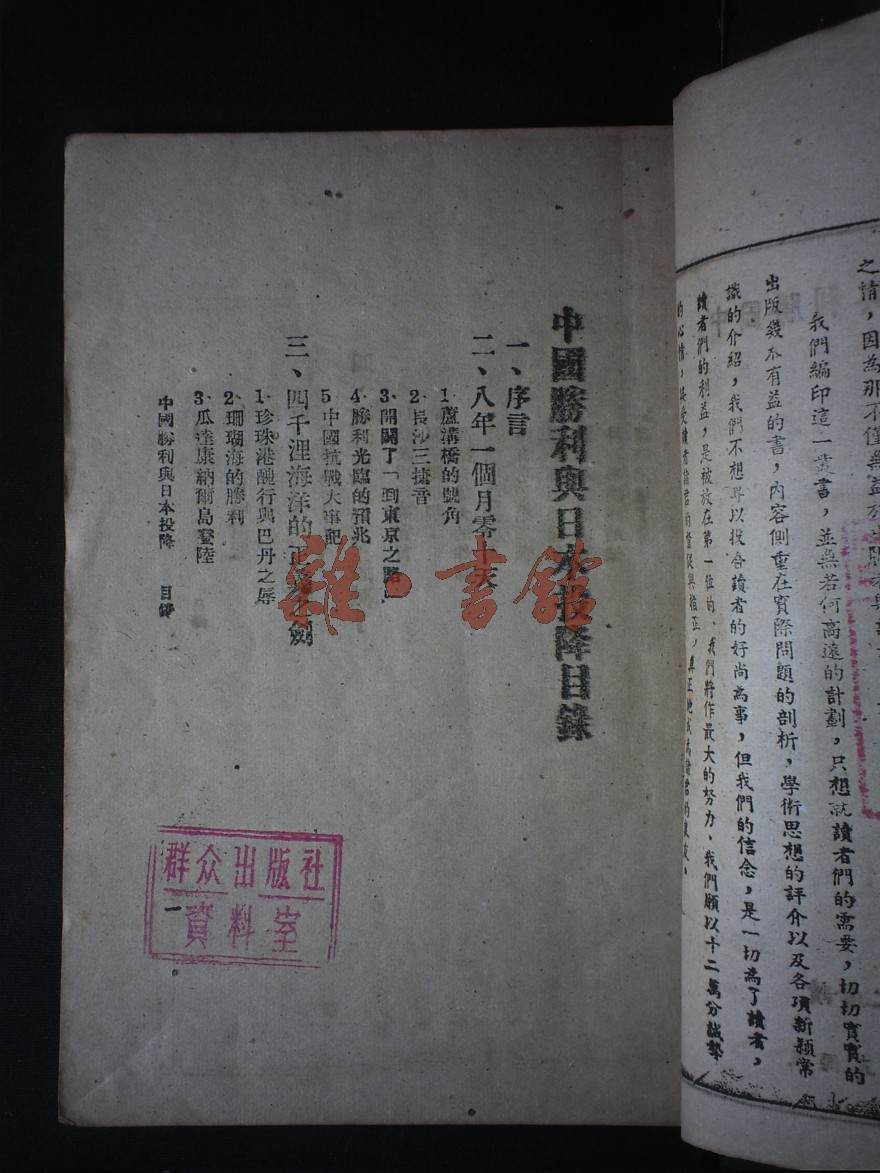 之情，因為那不僅無益
我們編印這一叢書，並無若何高遠的計劃，只想就讀者們的需要，切切實實的
出版幾本有益的書，內容側重在實際問題的剖析，學術思想的評介以及各項新穎常
識的介紹，我們不想專以投合讀者的好尚為事，但我們的信念，是一切為了讀者，
讀者們的利益，是被放在第一位的，我們將作最大的努力，我們願以十二萬分誠摯
的心情，接受讀者諸君的督促與指正，真正地成為諸君的
中國勝利與日本投降目錄
一、序言
二、八年一個月零十天
1·蘆溝橋的號角
2·長沙三捷音
3·開闢了「到東京之路」
4·勝利光臨的預兆
5·中國抗戰大事記
三、四千浬海洋的正義之劍
1·珍珠港醜行與巴丹之辱
2·珊瑚海的勝利
3·瓜達康納爾島登陸
中國勝利與日本投降　目錄
一
群众出版社
資料室
雜·書館